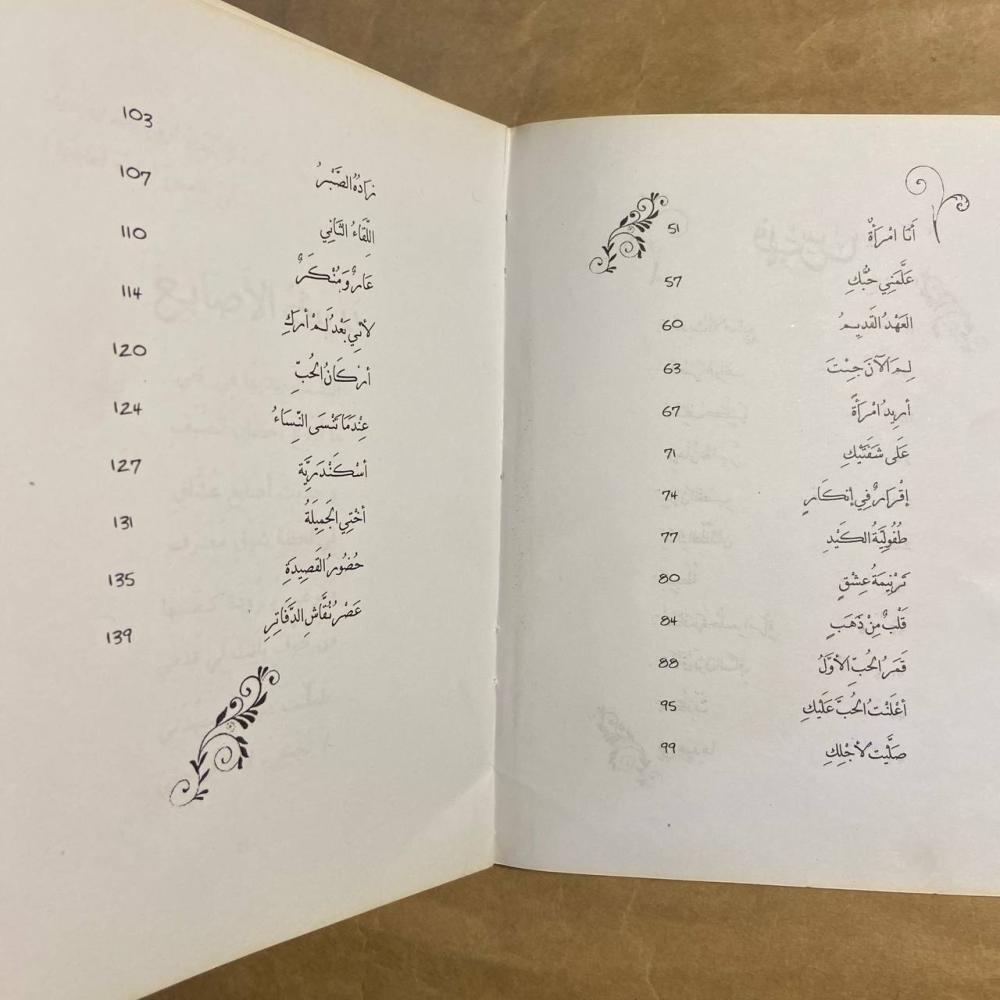 أَنَا امْرَأَةٌ 51
عَلَّمَنِي حُبُّكِ 57
العَهْدُ القَدِيمُ 60
لِمَ الآنَ جِئْتَ 63
أريدُ امْرَأةً 67
عَلَى شَفَتَيْكِ 71
إقْرَارٌ فِي إنْكَارٍ 74
طُفُولِيَّةُ الكَيْدِ 77
تَرْنِيمَةُ عِشْقٍ 80
قَلْبٌ مِنْ ذَهَبٍ 84
قَمَرُ الحُبِّ الأوَّلُ 88
أعْلَنْتُ الحُبَّ عَلَيْكِ 95
صَلَّيْت لأجْلِكِ 99
زَادُهُ الصَّبْرُ 103
اللِّقَاءُ الثَّانِي 107
عَارٌ وَمُنْكَرٌ 110
لأنِّي بَعْدُ لَمْ أَرَكِ 114
أرْكَانُ الحُبِّ 120
عِنْدَمَا تَنْسَى النِّسَاءُ 124
أسْكَنْدَرِيَّة 127
أخْتِي الجَمِيلَةُ 131
حُضُورُ القَصِيدَةِ 135
عَصْرُ نُقَّاشِ الدَّفَاتِرِ 139